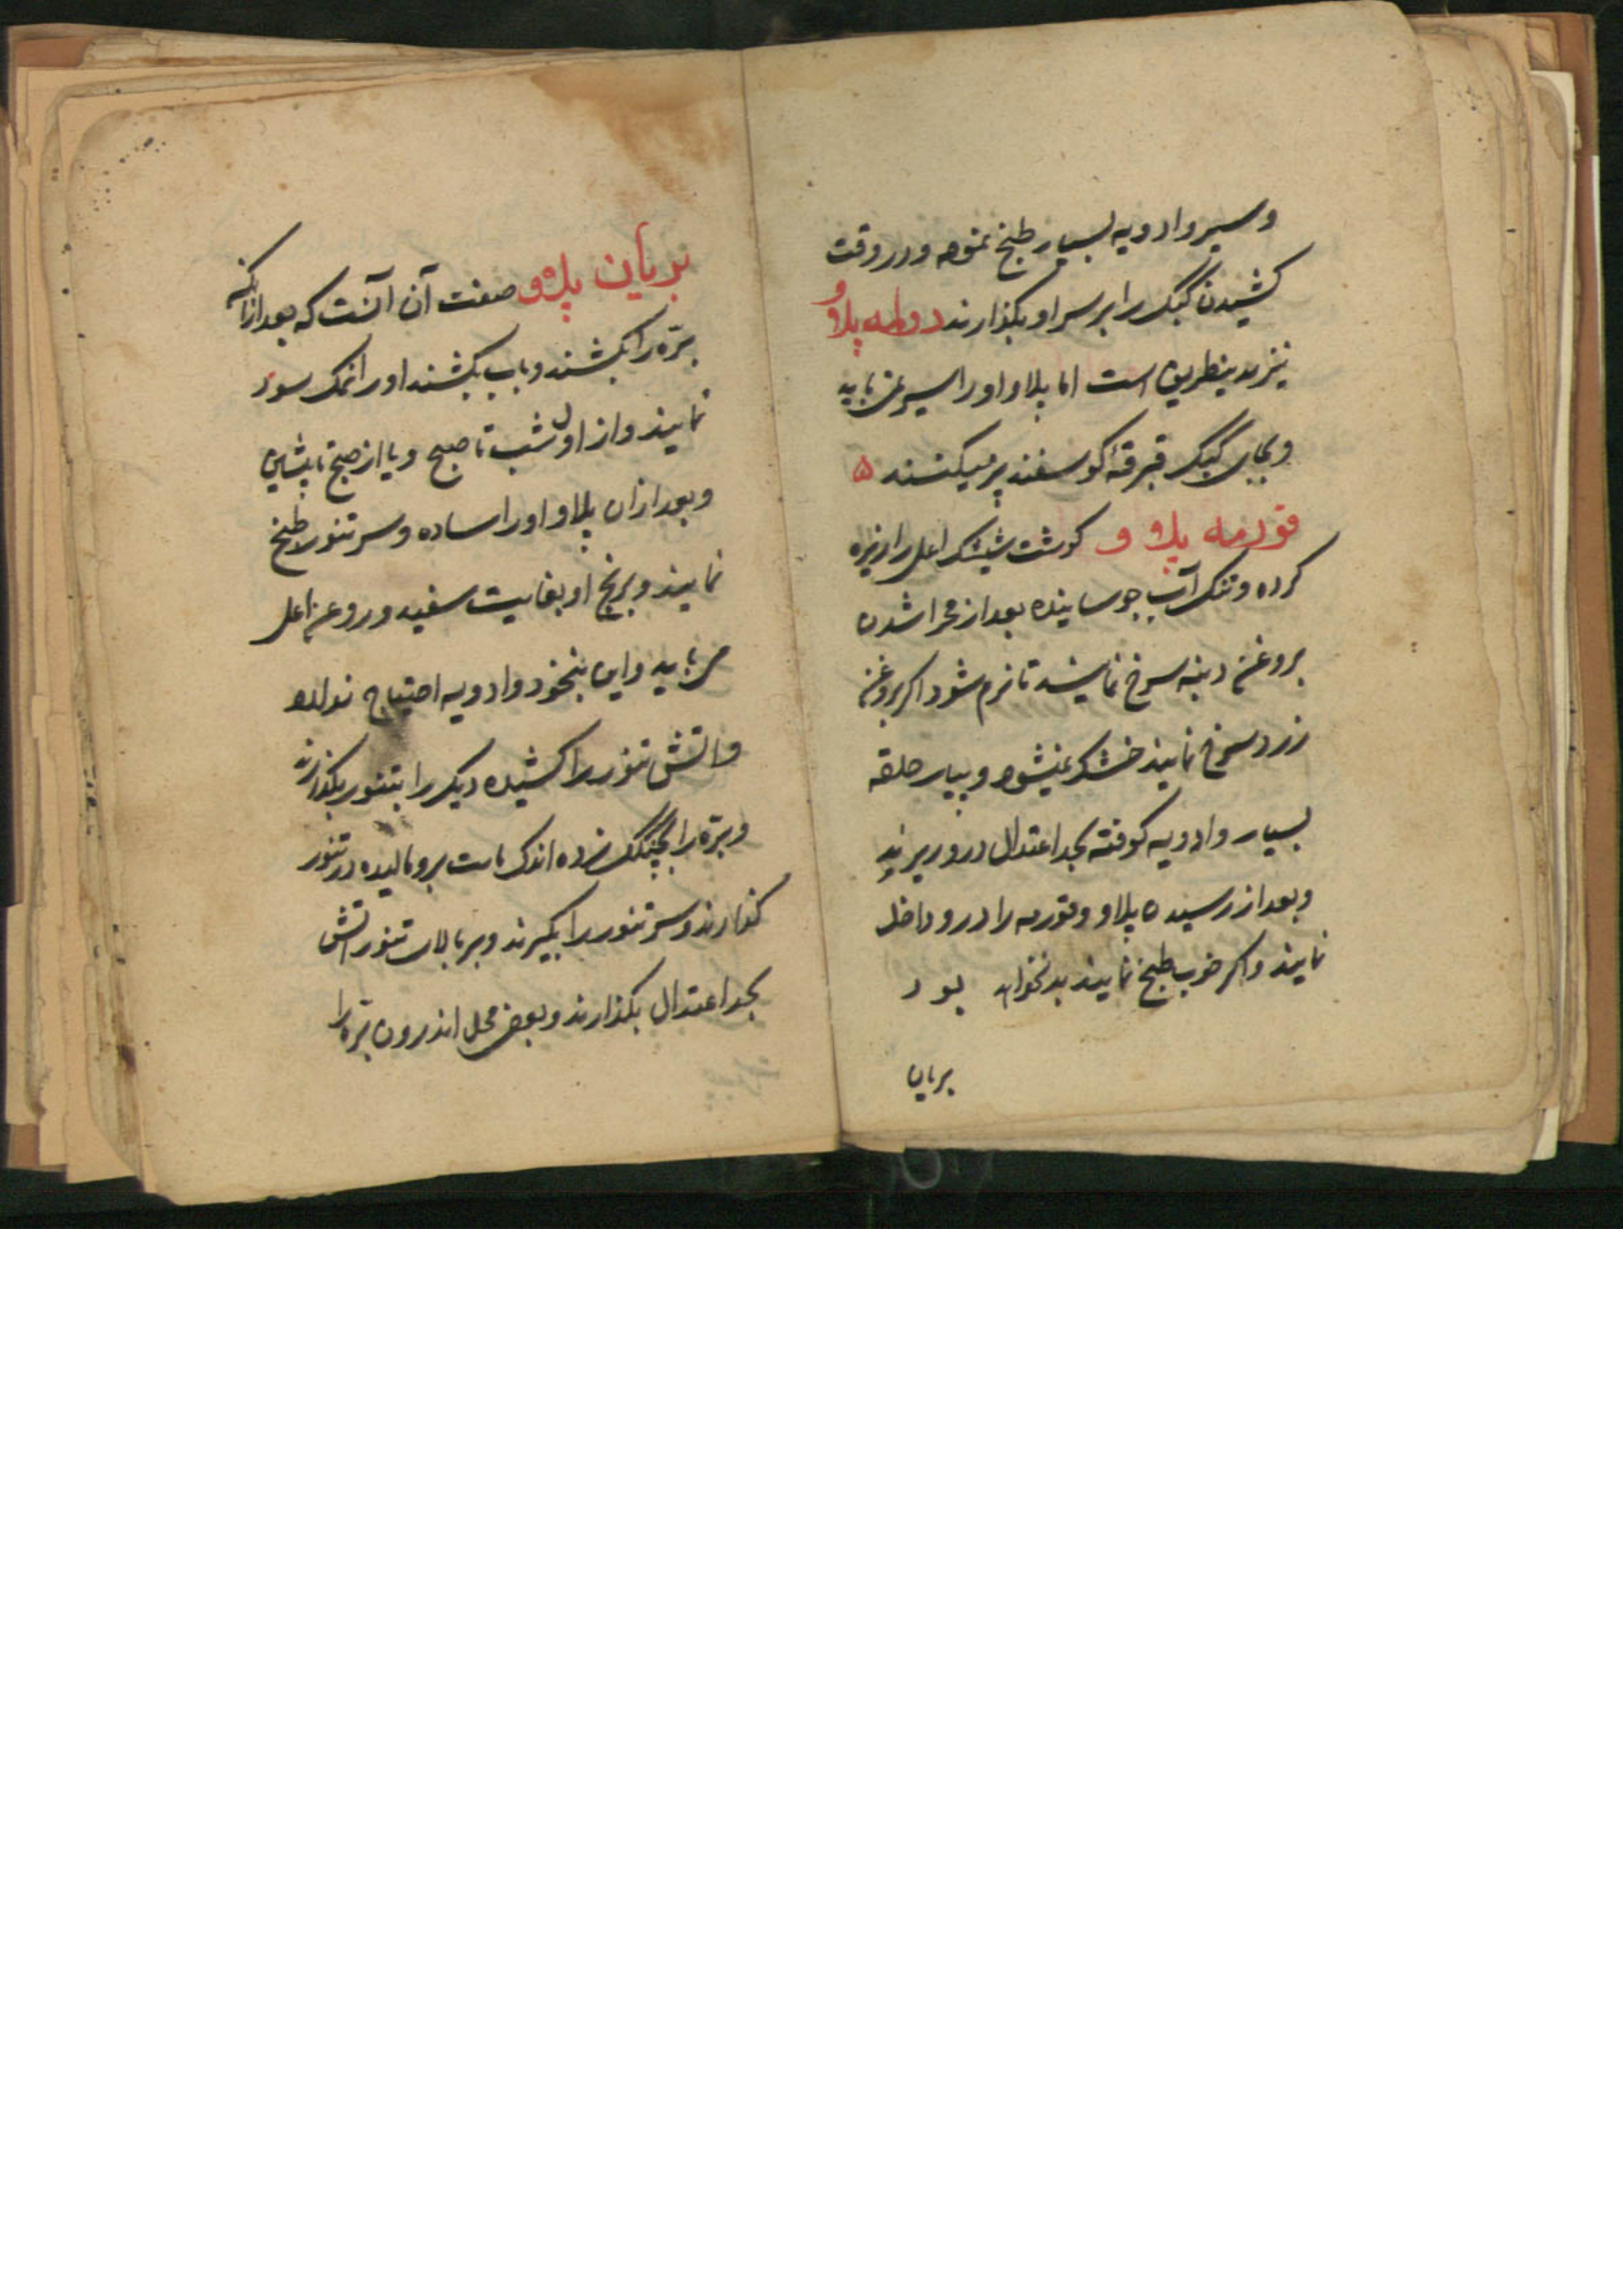 و سیر و ادویه بسیار طبخ نموده و در وقت
کشیدن کیک را بر سر او بکذارند دولمه پلاو
نیز بدینطریق است اما پلاو او را سیر نمی باید
و بجای کیپک قبرقه کوسفند پر میکنند ۵
قورمه پلاو کوشت شیشک اعلی را ریزه
کرده و تنک آب جوسانیده بعد از مجرا شدن
بروغن دنبه سرخ نمایند تا نرم شود اکر بروغن
زرد سرخ نمایند خشک میشود و پیاز حلقه
بسیار و ادویه کوفته بحد اعتدال درو ریزند
و بعد از رسیدن پلاو قورمه را درو داخل
نمایند و اکر خوب طبخ نمایند بد نخواهد بود
بریان
بریان پلاو صفت آن آنست که بعد از آنکه
بره را بکشند و بآب بکشند او را نمک سود
نمایند و از اول شب تا صبح و یا از صبح تا پیشین
و بعد از ان پلاو او را ساده و سر تنور طبخ
نمایند و برنج او بغایت سفید و روغن اعلی
می باید و این بنخود و ادویه احتیاج ندارد
و اتش تنور را کشیده دیک را بتنور بکذارند
و بره را بچنکک زده اندک ماست برو مالیده در تنور
کذارند و سر تنور را بکیرند و بر بالای تنور اتش
بحد اعتدال بکذارند و بعض محل اندرون بره را